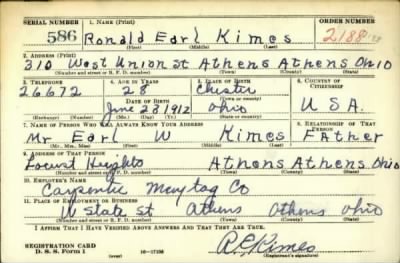 SERIAL NUMBER 1. NAME (Print) ORDER NUMBER
586 Ronald Earl Kimes 2188
(First) (Middle) (Last)
2. ADDRESS (Print)
310 West Union St Athens Athens Ohio
(Number and street or R. F. D. number) (Town) (County) (State)
3. TELEPHONE 4. AGE IN YEARS 5. PLACE OF BIRTH 6. COUNTRY OF CITIZENSHIP
26672 28 Chester
DATE OF BIRTH (Town or county)
June 23 1912 Ohio U S A.
(Exchange) (Number) (Mo.) (Day) (Yr.) (State or country)
7. NAME OF PERSON WHO WILL ALWAYS KNOW YOUR ADDRESS 8. RELATIONSHIP OF THAT PERSON
Mr Earl W Kimes Father
(Mr., Mrs., Miss) (First) (Middle) (Last)
9. ADDRESS OF THAT PERSON
Locust Heights Athens Athens Ohio
(Number and street or R. F. D. number) (Town) (County) (State)
10. EMPLOYER'S NAME
Maytag Co
11. PLACE OF EMPLOYMENT OR BUSINESS
W State st Athens Athens Ohio
(Number and street or R. F. D. number) (Town) (County) (State)
I AFFIRM THAT I HAVE VERIFIED ABOVE ANSWERS AND THAT THEY ARE TRUE.
REGISTRATION CARD
D. S. S. Form 1 (over) R E Kimes
(Registrant's signature)